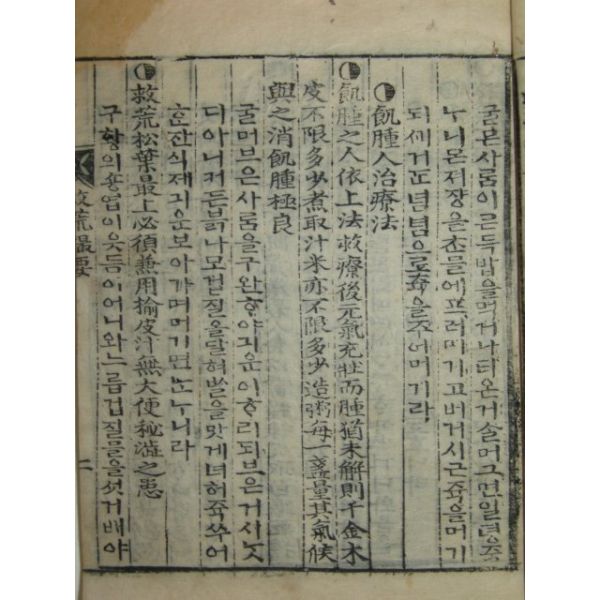 굴믄사ᄅᆞᆷ이ᄀᆞᄃᆞᆨ밥을먹거나더온거슬머그면일뎡죽
ᄂᆞ니몬져쟝을ᄎᆞᆫ믈에프러머기고버거시근쥭을머기
되세거든념념으로쥭을주어머기라
飢腫人治療法
飢腫之人依上法救療後元氣充壯而腫猶未解則千金木
皮不限多少煮取汁米亦不限多少造粥每一盞量其氣候
與之消飢腫極良
굴머브은사ᄅᆞᆷ을구완ᄒᆞ야긔운이ᄒᆞ리되브은거시ᄂᆞᆺ
디아니커든븕나모겁질을달혀ᄡᆞᆯ을맛게녀허쥭쑤어
ᄒᆞᆫ잔식제긔운보아가며머기면됴ᄂᆞ니라
救荒松葉最上必須兼用楡皮汁無大便秘澁之患
구황의숑엽이웃듬이어니와느릅겁질믈을섯거ᄡᅥ야
救荒撮要
二